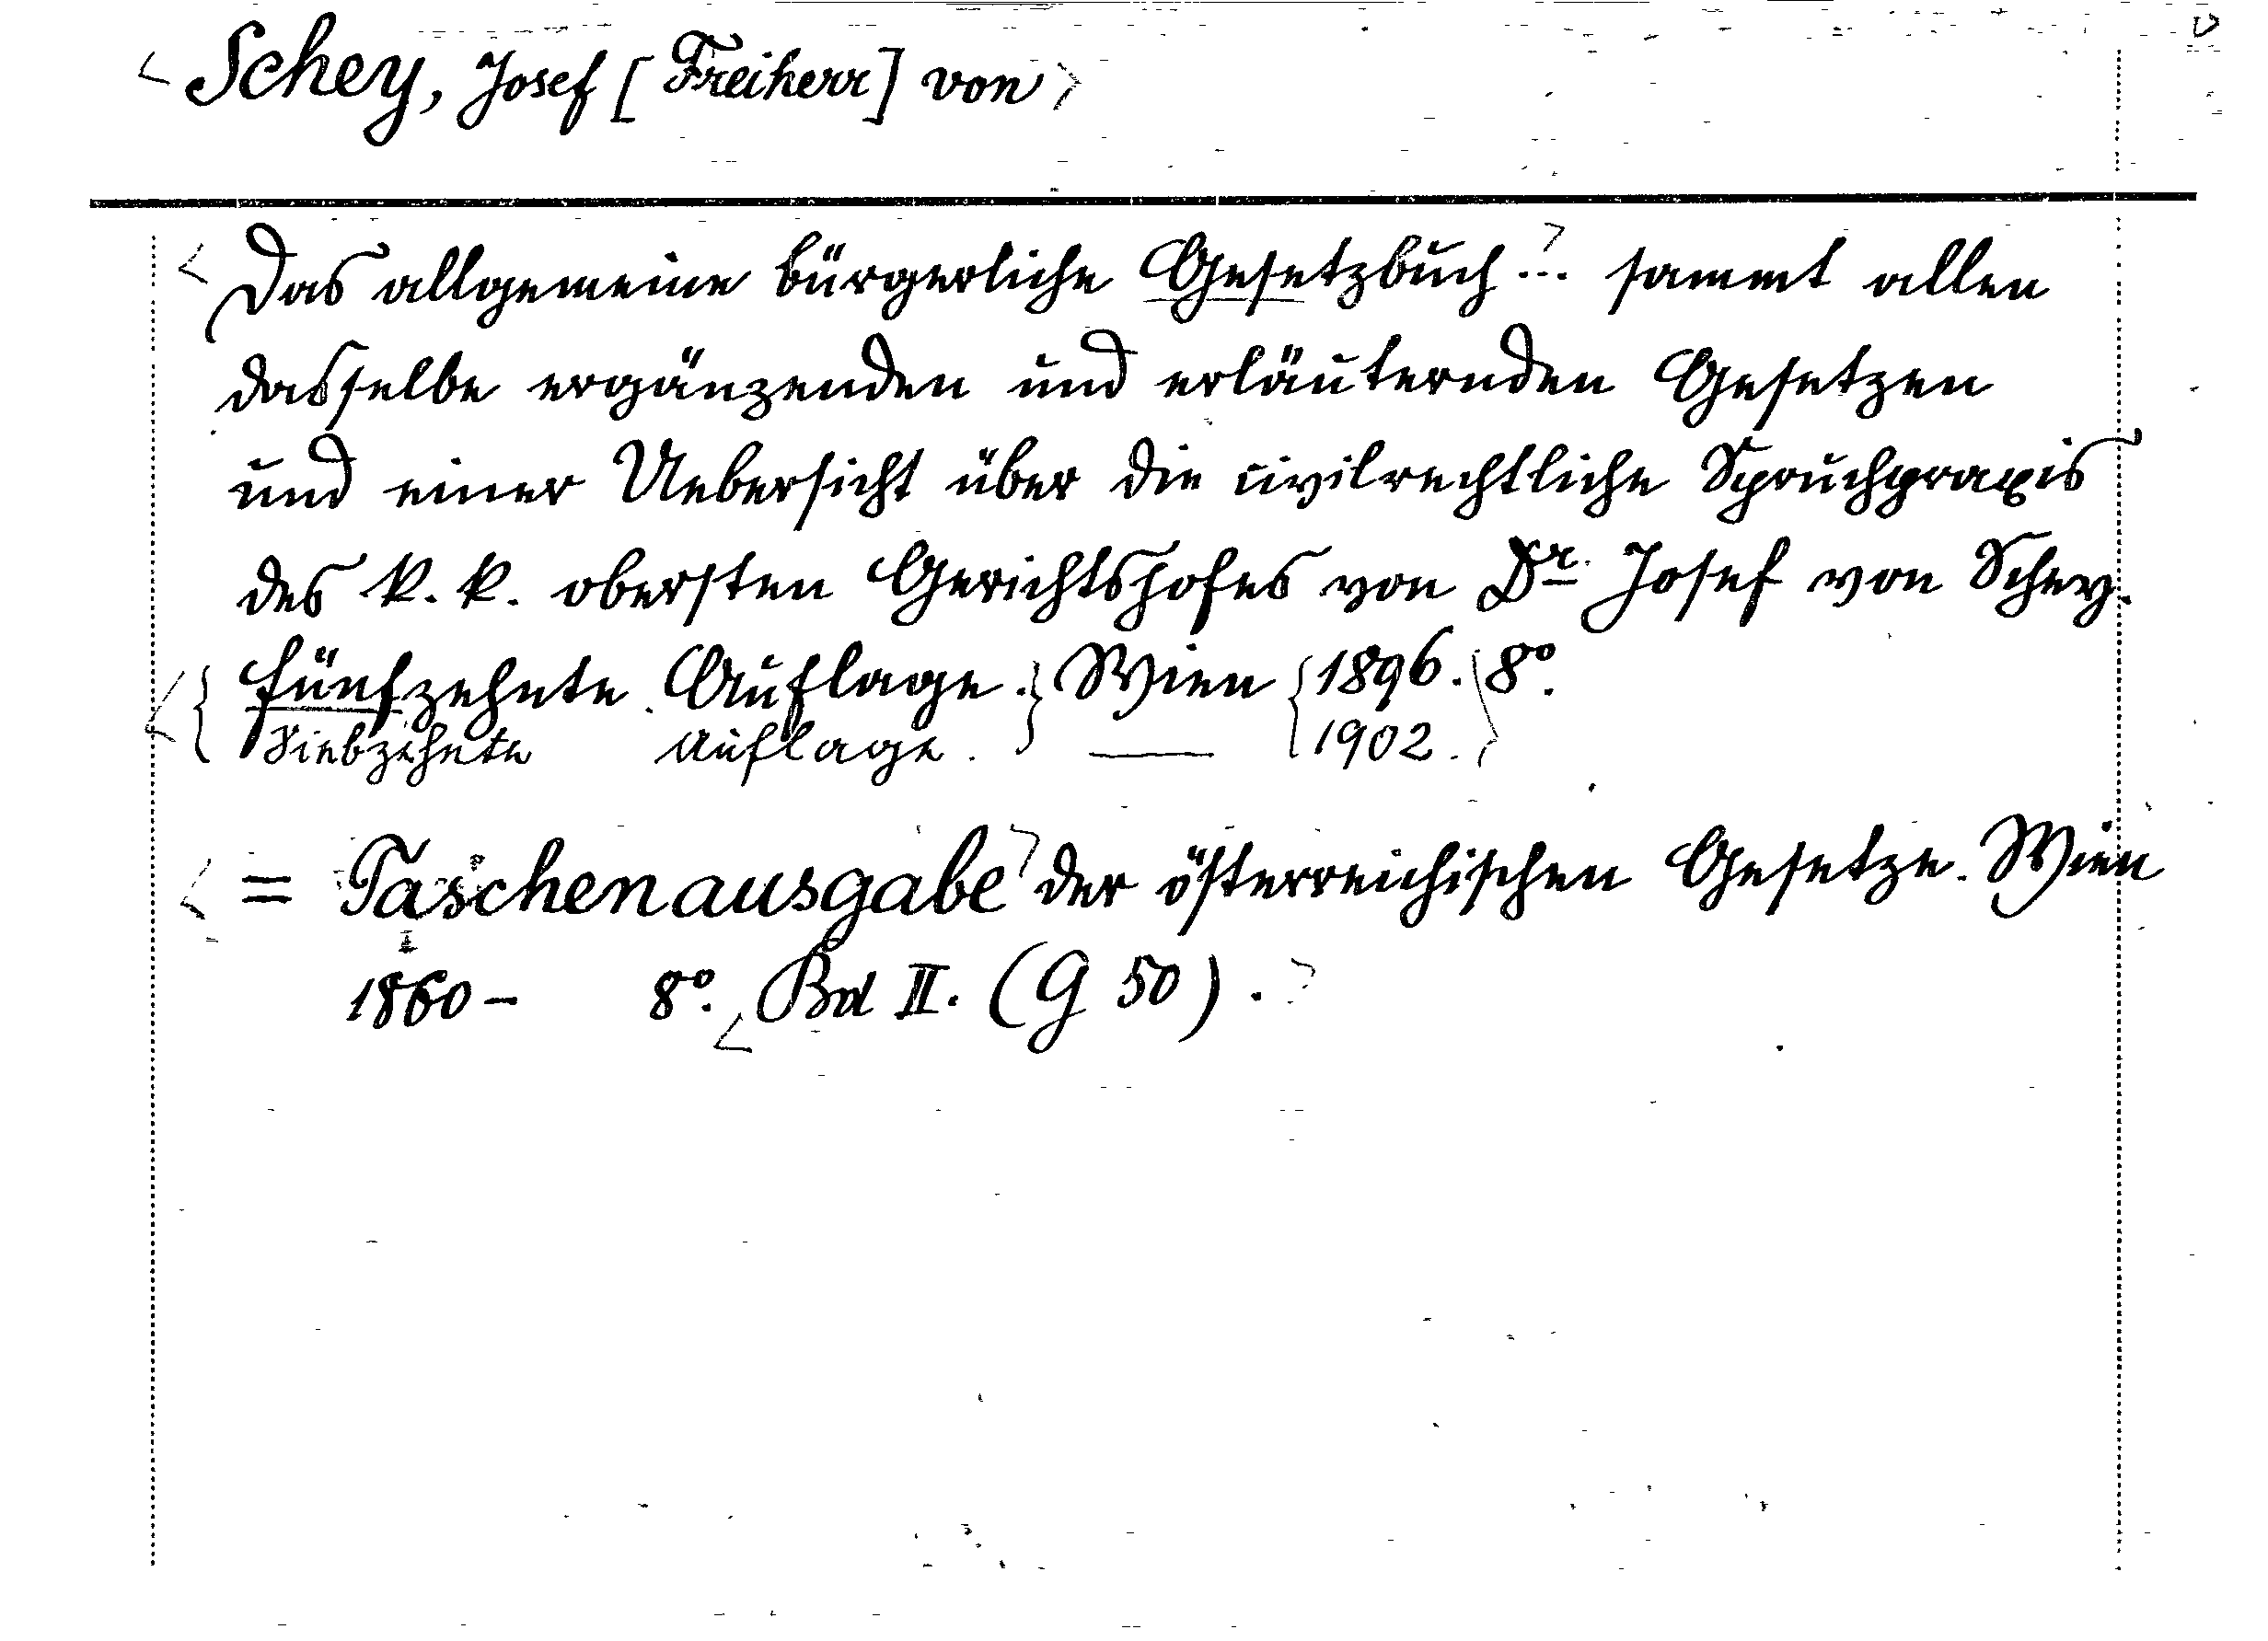 <Schey, Josef [Freiherr] von>
<Das allgemeine bürgerliche Gesetzbuch> ... sammt allen
dasselbe ergänzenden und erläuternden Gesetzen
und einer Uebersicht über die civilrechtliche Spruchpraxis
des k. k. obersten Gerichtshofes von Dr. Josef von Schey.
<{fünfzehnte Auflage.} Wien {1896.> 8°.
Siebzehnte Auflage. — 1902.
<= Taschenausgabe> der österreichischen Gesetze. Wien
1860– 8°. <Bd II. (G 50).>